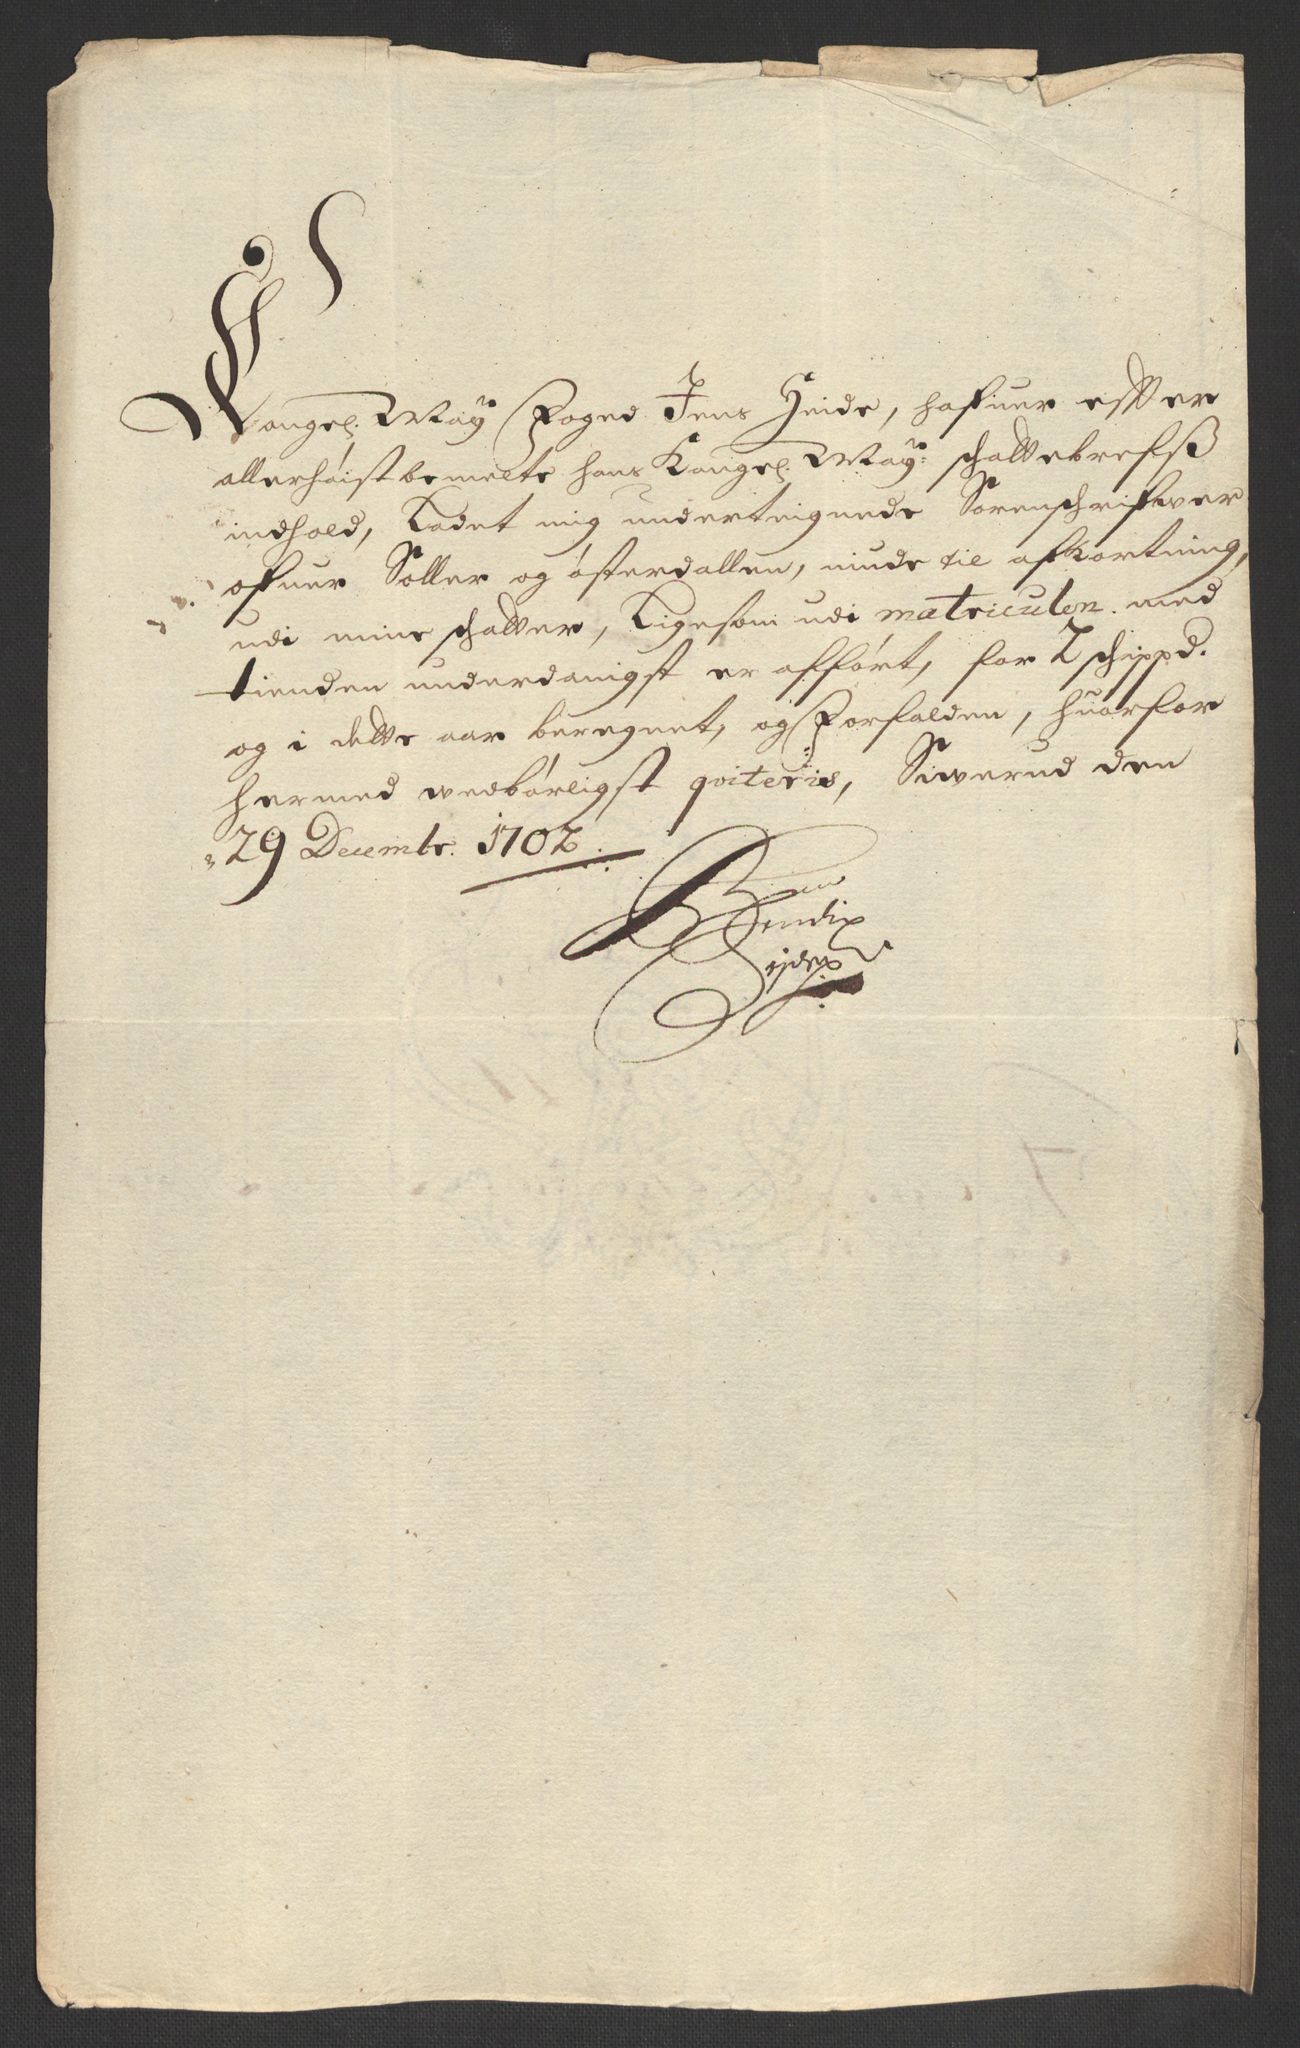 Kongel. May Foged Jens Heide, hafuer efter
allerhöist bemelte hans Kongel. May: schattebrefs
indhold, Ladet mig underteignede Sorenschrifwer
ofuer Soller og österdallen, niude til afkortning,
udi mine schatter, Ligesom udi matriculen med
tienden underdanigst er afført, for 2 schippd.
og i dette aar beregnet, og Forfalden, huorfor
hermed wedbörligst qviteris, Siwerud den
29 Decembr. 1702.
Bendix